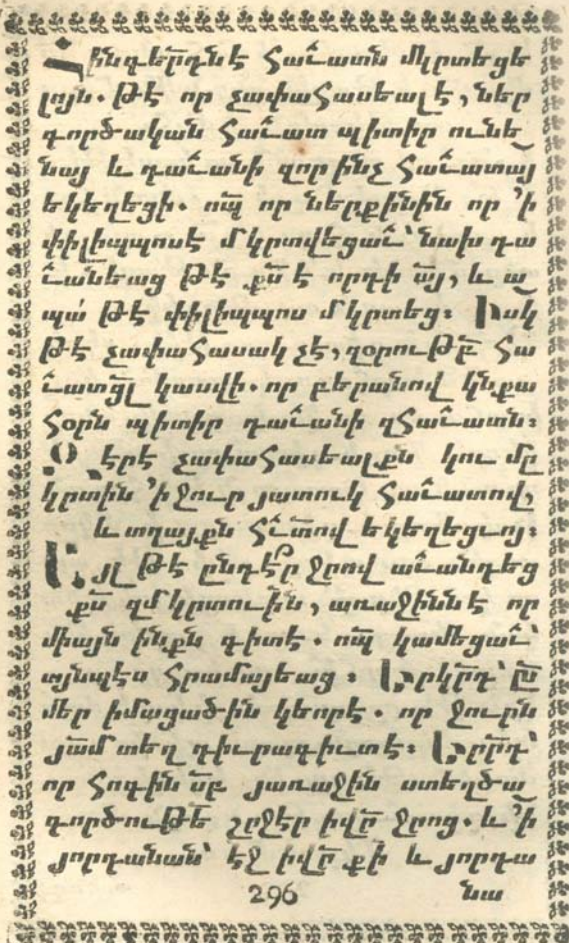 Հինգերդնէ Հաւատն մկրտեցե
լոյն. թէ որ չափահասեալ է, ներ
գործական հաւատ պիտիր ունե
նայ և դաւանի զոր ինչ հաւատայ
եկեղեցի. որպ որ ներքինին որ ՚ի
փիլիպպոսէ մկրտվեցաւ՝ նախ դա
ւանեաց թէ քս է որդի այ, և ա
պա թէ փիլիպպոս մկրտեց։ Իսկ
թէ չափահասակ չէ, զօրութբ հա
ւատցլ կասվի. որ բերանով կնքա
հօրն պիտիր դաւանի զհաւատն։
Զերէ չափահասեալքն կու մը
կրտին ՚ի ջուր յատուկ հաւատով,
և տղայքն հւտով եկեղեցւոյ։
Այլ թէ ընդէր ջրով աւանդեց
քս զմկրտուին, առաջիննէ որ
միայն ինքն գիտէ. ոպ կամեցաւ՝
այնպէս հրամայեաց։ Երկրդ՝ ըստ
մեր իմացածին կեորէ. որ ջուրն
յամ տեղ դիւրագիւտէ։ Երրդ՝
որ հոգին սբ յառաջին ստեղծա
գործութե շրջէր իվր ջրոց. և ՚ի
յորդանան՝ էջ իվր քի և յորդա
296 նա